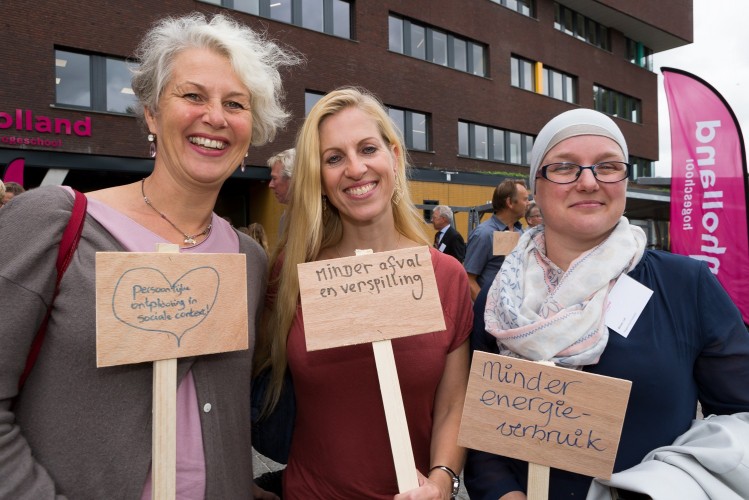 holland
hogeschool
persoonlijke
ontplooiing in
sociale context!
Minder afval
en verspilling
Minder
energie-
verbruik
hogeschool
inholland